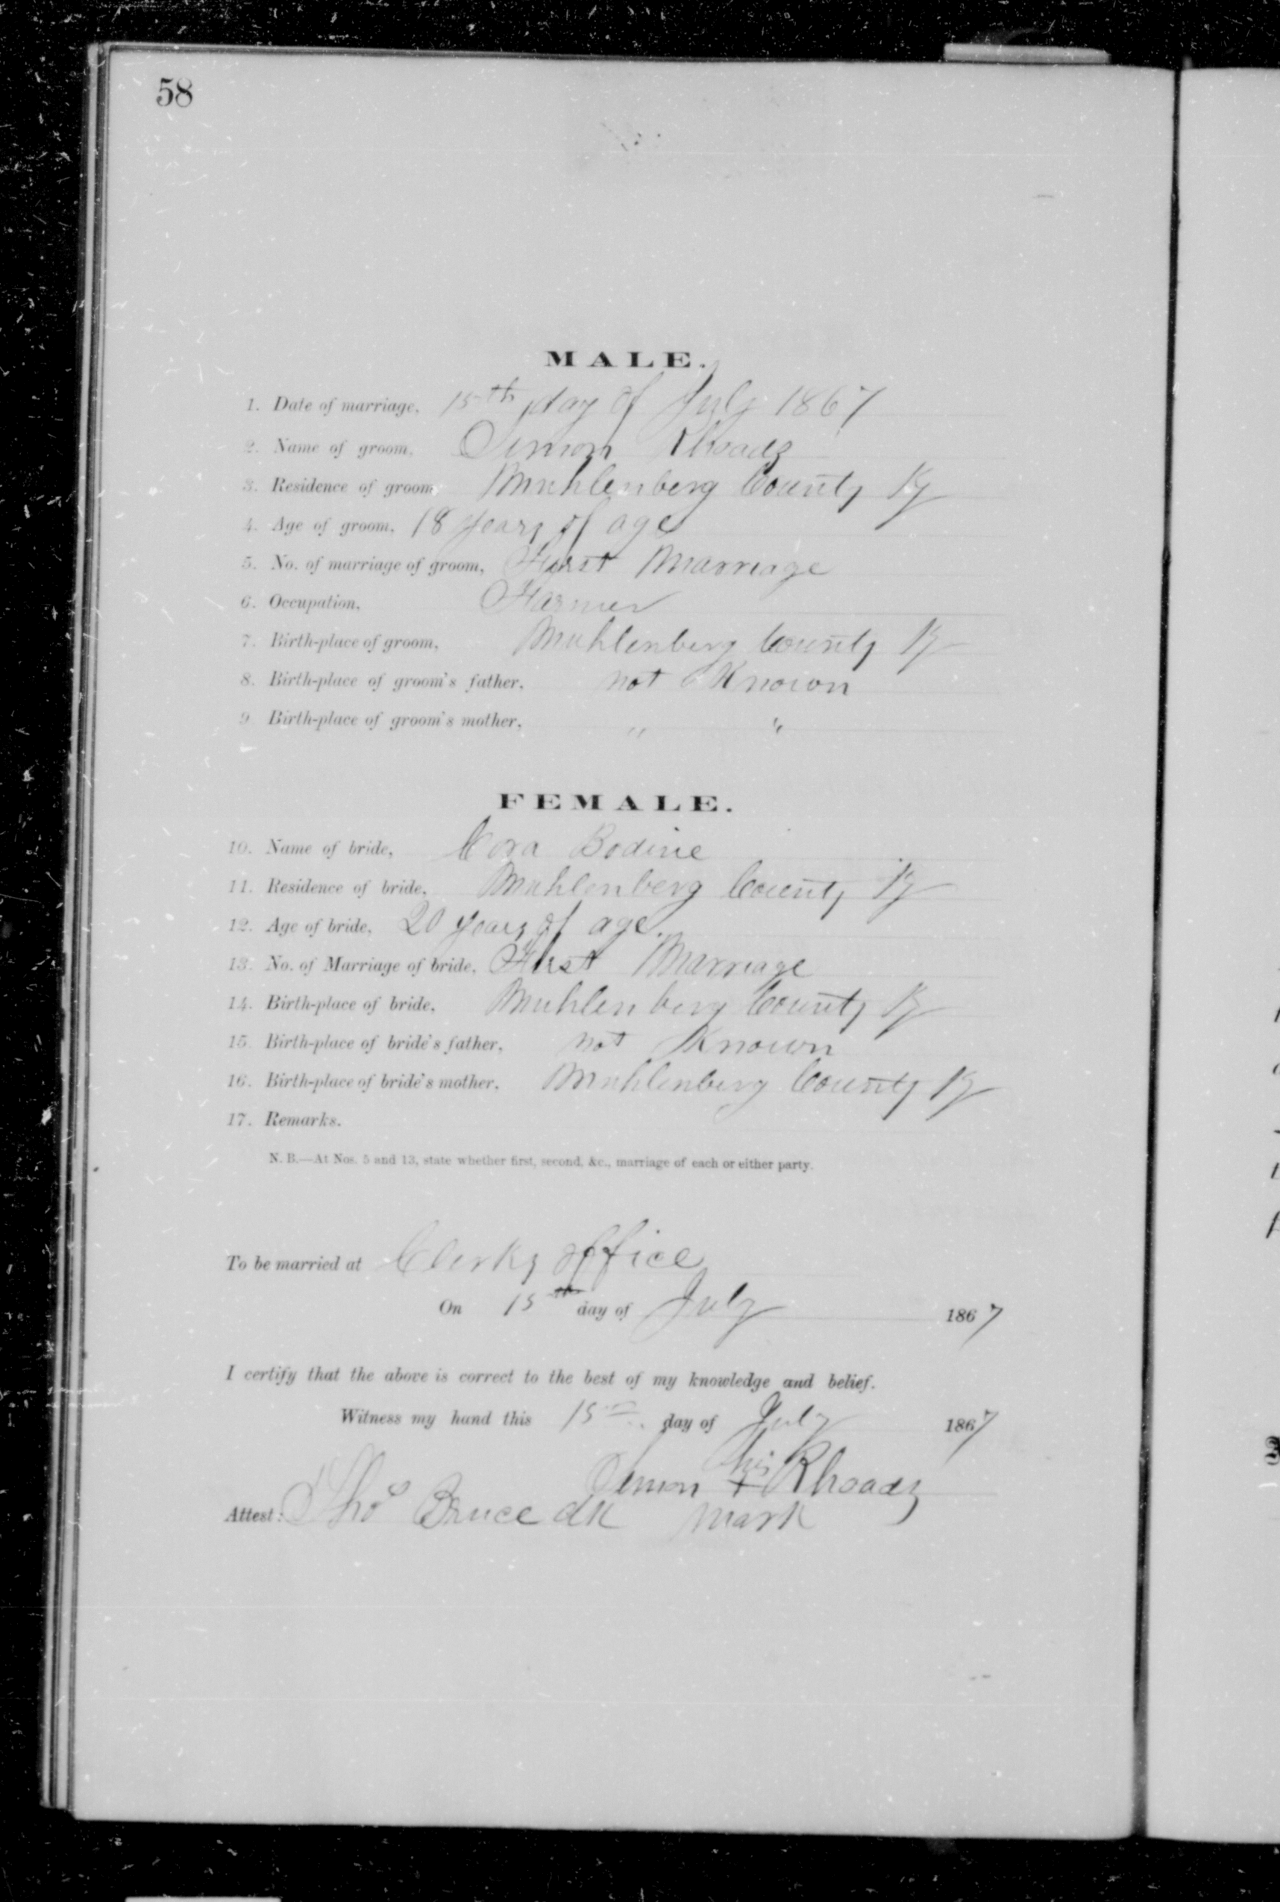 58
MALE.
1. Date of marriage, 15th day of July 1867
2. Name of groom, Simon Rhoads
3. Residence of groom, Muhlenberg County Ky
4. Age of groom, 18 years of age
5. No. of marriage of groom, First Marriage
6. Occupation, Farmer
7. Birth-place of groom, Muhlenberg County Ky
8. Birth-place of groom's father, not Known
9. Birth-place of groom's mother, " "
FEMALE.
10. Name of bride, Cora Bodine
11. Residence of bride, Muhlenberg County Ky
12. Age of bride, 20 years of age.
13. No. of Marriage of bride, First Marriage
14. Birth-place of bride, Muhlenberg County Ky
15. Birth-place of bride's father, not Known
16. Birth-place of bride's mother, Muhlenberg County Ky
17. Remarks.
N. B.—At Nos. 5 and 13, state whether first, second, &c., marriage of each or either party.
To be married at Clerks office
On 15th day of July 1867
I certify that the above is correct to the best of my knowledge and belief.
Witness my hand this 15th day of July 1867
Simon his + Rhoads
Attest: Thos Bruce clk mark